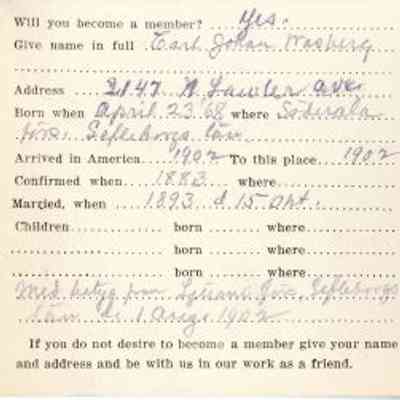 Will you become a member? Yes.
Give name in full Carl Johan Wasberg
Address 2147 N Lawler ave.
Born when April 23 '68 where Söderala
förs. Gefleborgs län
Arrived in America 1902 To this place 1902
Confirmed when 1883 where
Married, when 1893 d 15 Okt.
Children born where
born where
born where
Med betyg från förs, Gefleborgs
län de 1 Aug. 1902
If you do not desire to become a member give your name
and address and be with us in our work as a friend.